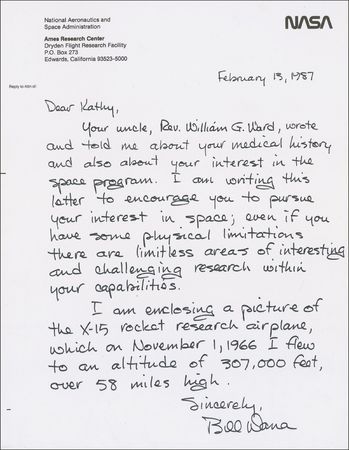 National Aeronautics and
Space Administration
NASA
Ames Research Center
Dryden Flight Research Facility
P.O. Box 273
Edwards, California 93523-5000
Reply to Attn of:
February 13, 1987
Dear Kathy,
Your uncle, Rev. William G. Ward, wrote
and told me about your medical history
and also about your interest in the
space program. I am writing this
letter to encourage you to pursue
your interest in space; even if you
have some physical limitations
there are limitless areas of interesting
and challenging research within
your capabilities.
I am enclosing a picture of
the X-15 rocket research airplane,
which on November 1, 1966 I flew
to an altitude of 307,000 feet,
over 58 miles high.
Sincerely,
Bill Dana